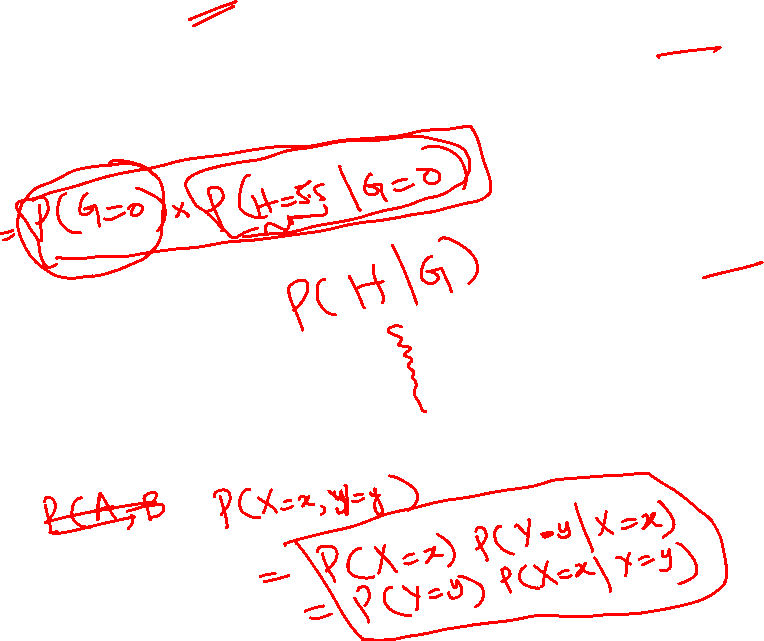 = P(G=0) × P(H=55 | G=0)
P(H | G)
P(A,B P(X=x, Y=y)
= P(X=x) P(Y=y | X=x)
= P(Y=y) P(X=x | Y=y)